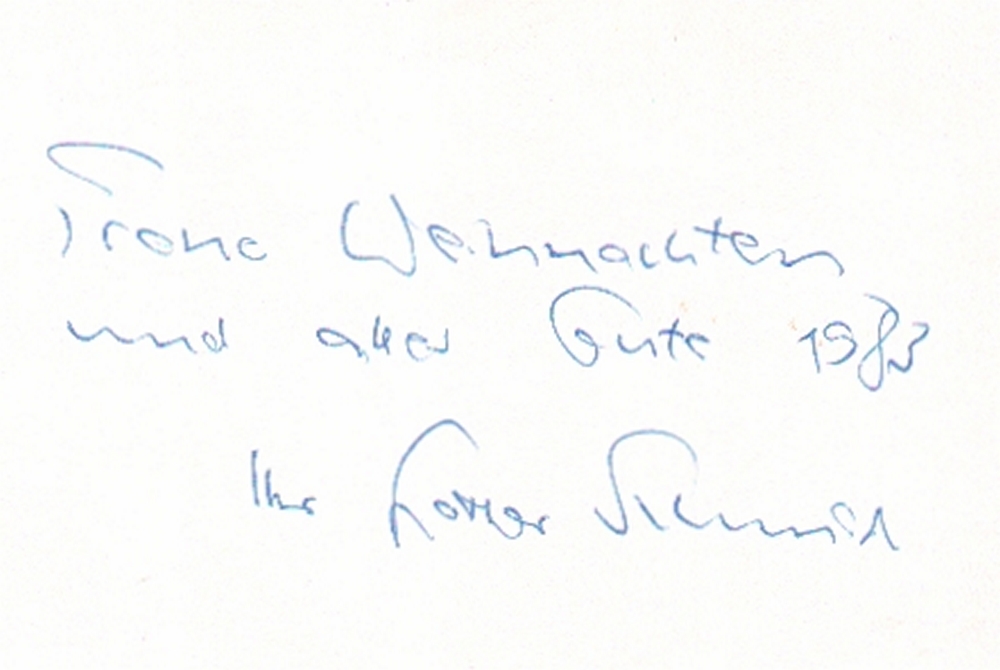 Frohe Weihnachten
und alles Gute 1983
Ihr Lothar Schmid